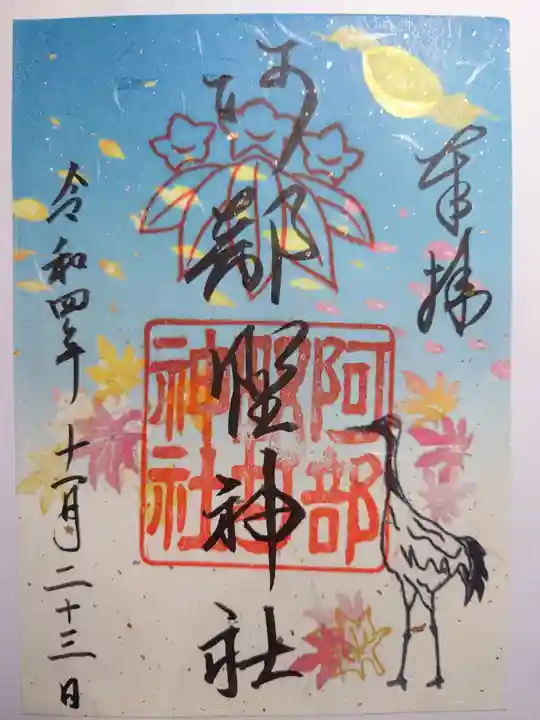 奉拝
阿部野神社
令和四年十一月二十三日
阿部
神社